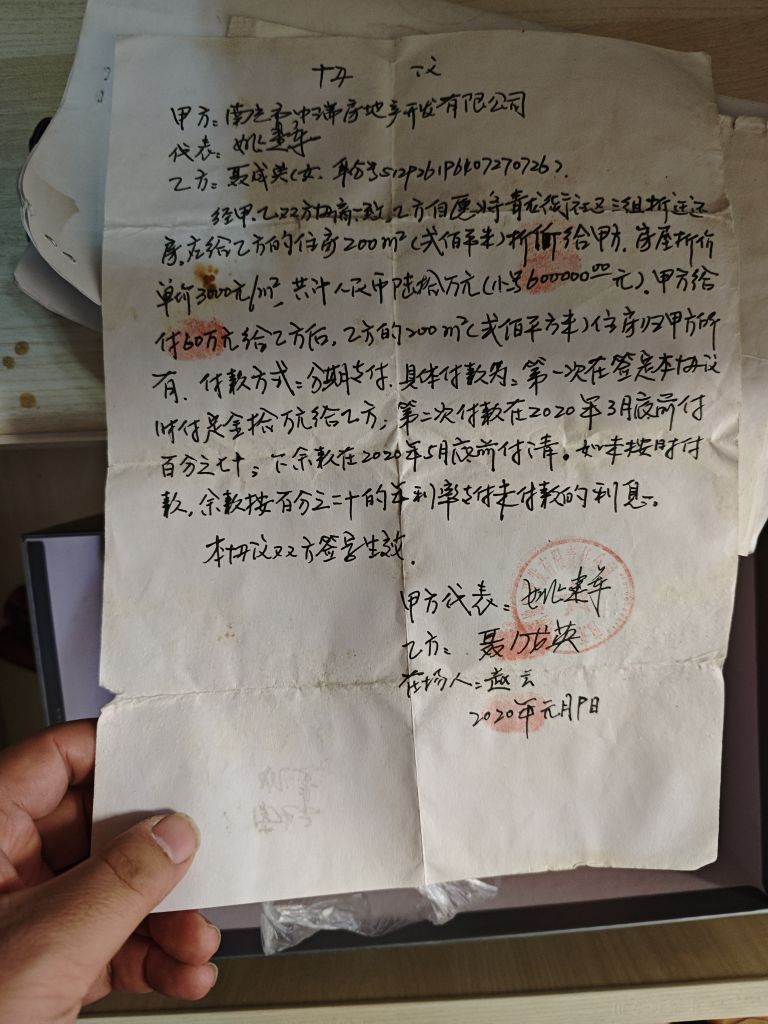 协 议
甲方：南充市中瑞房地产开发有限公司
代表：姚建军
乙方：聂成英(女.身份号512926196407270726).
经甲.乙双方协商一致,乙方自愿将青龙街社区三组拆迁还
房.应给乙方的住房200m²(贰佰平米)折价给甲方.房屋折价
单价3000元/m².共计人民币陆拾万元(小号600000.00元).甲方给
付60万元给乙方后,乙方的200m²(贰佰平方米)住房归甲方所
有.付款方式：分期支付.具体付款为：第一次在签定本协议
时付定金拾万元给乙方;第二次付款在2020年3月底前付
百分之七十;下余款在2020年5月底前付清。如未按时付
款,余款按百分之二十的年利率支付未付款的利息。
本协议双方签字生效.
甲方代表：姚建军
乙方：聂成英
在场人：赵云
2020年元月9日